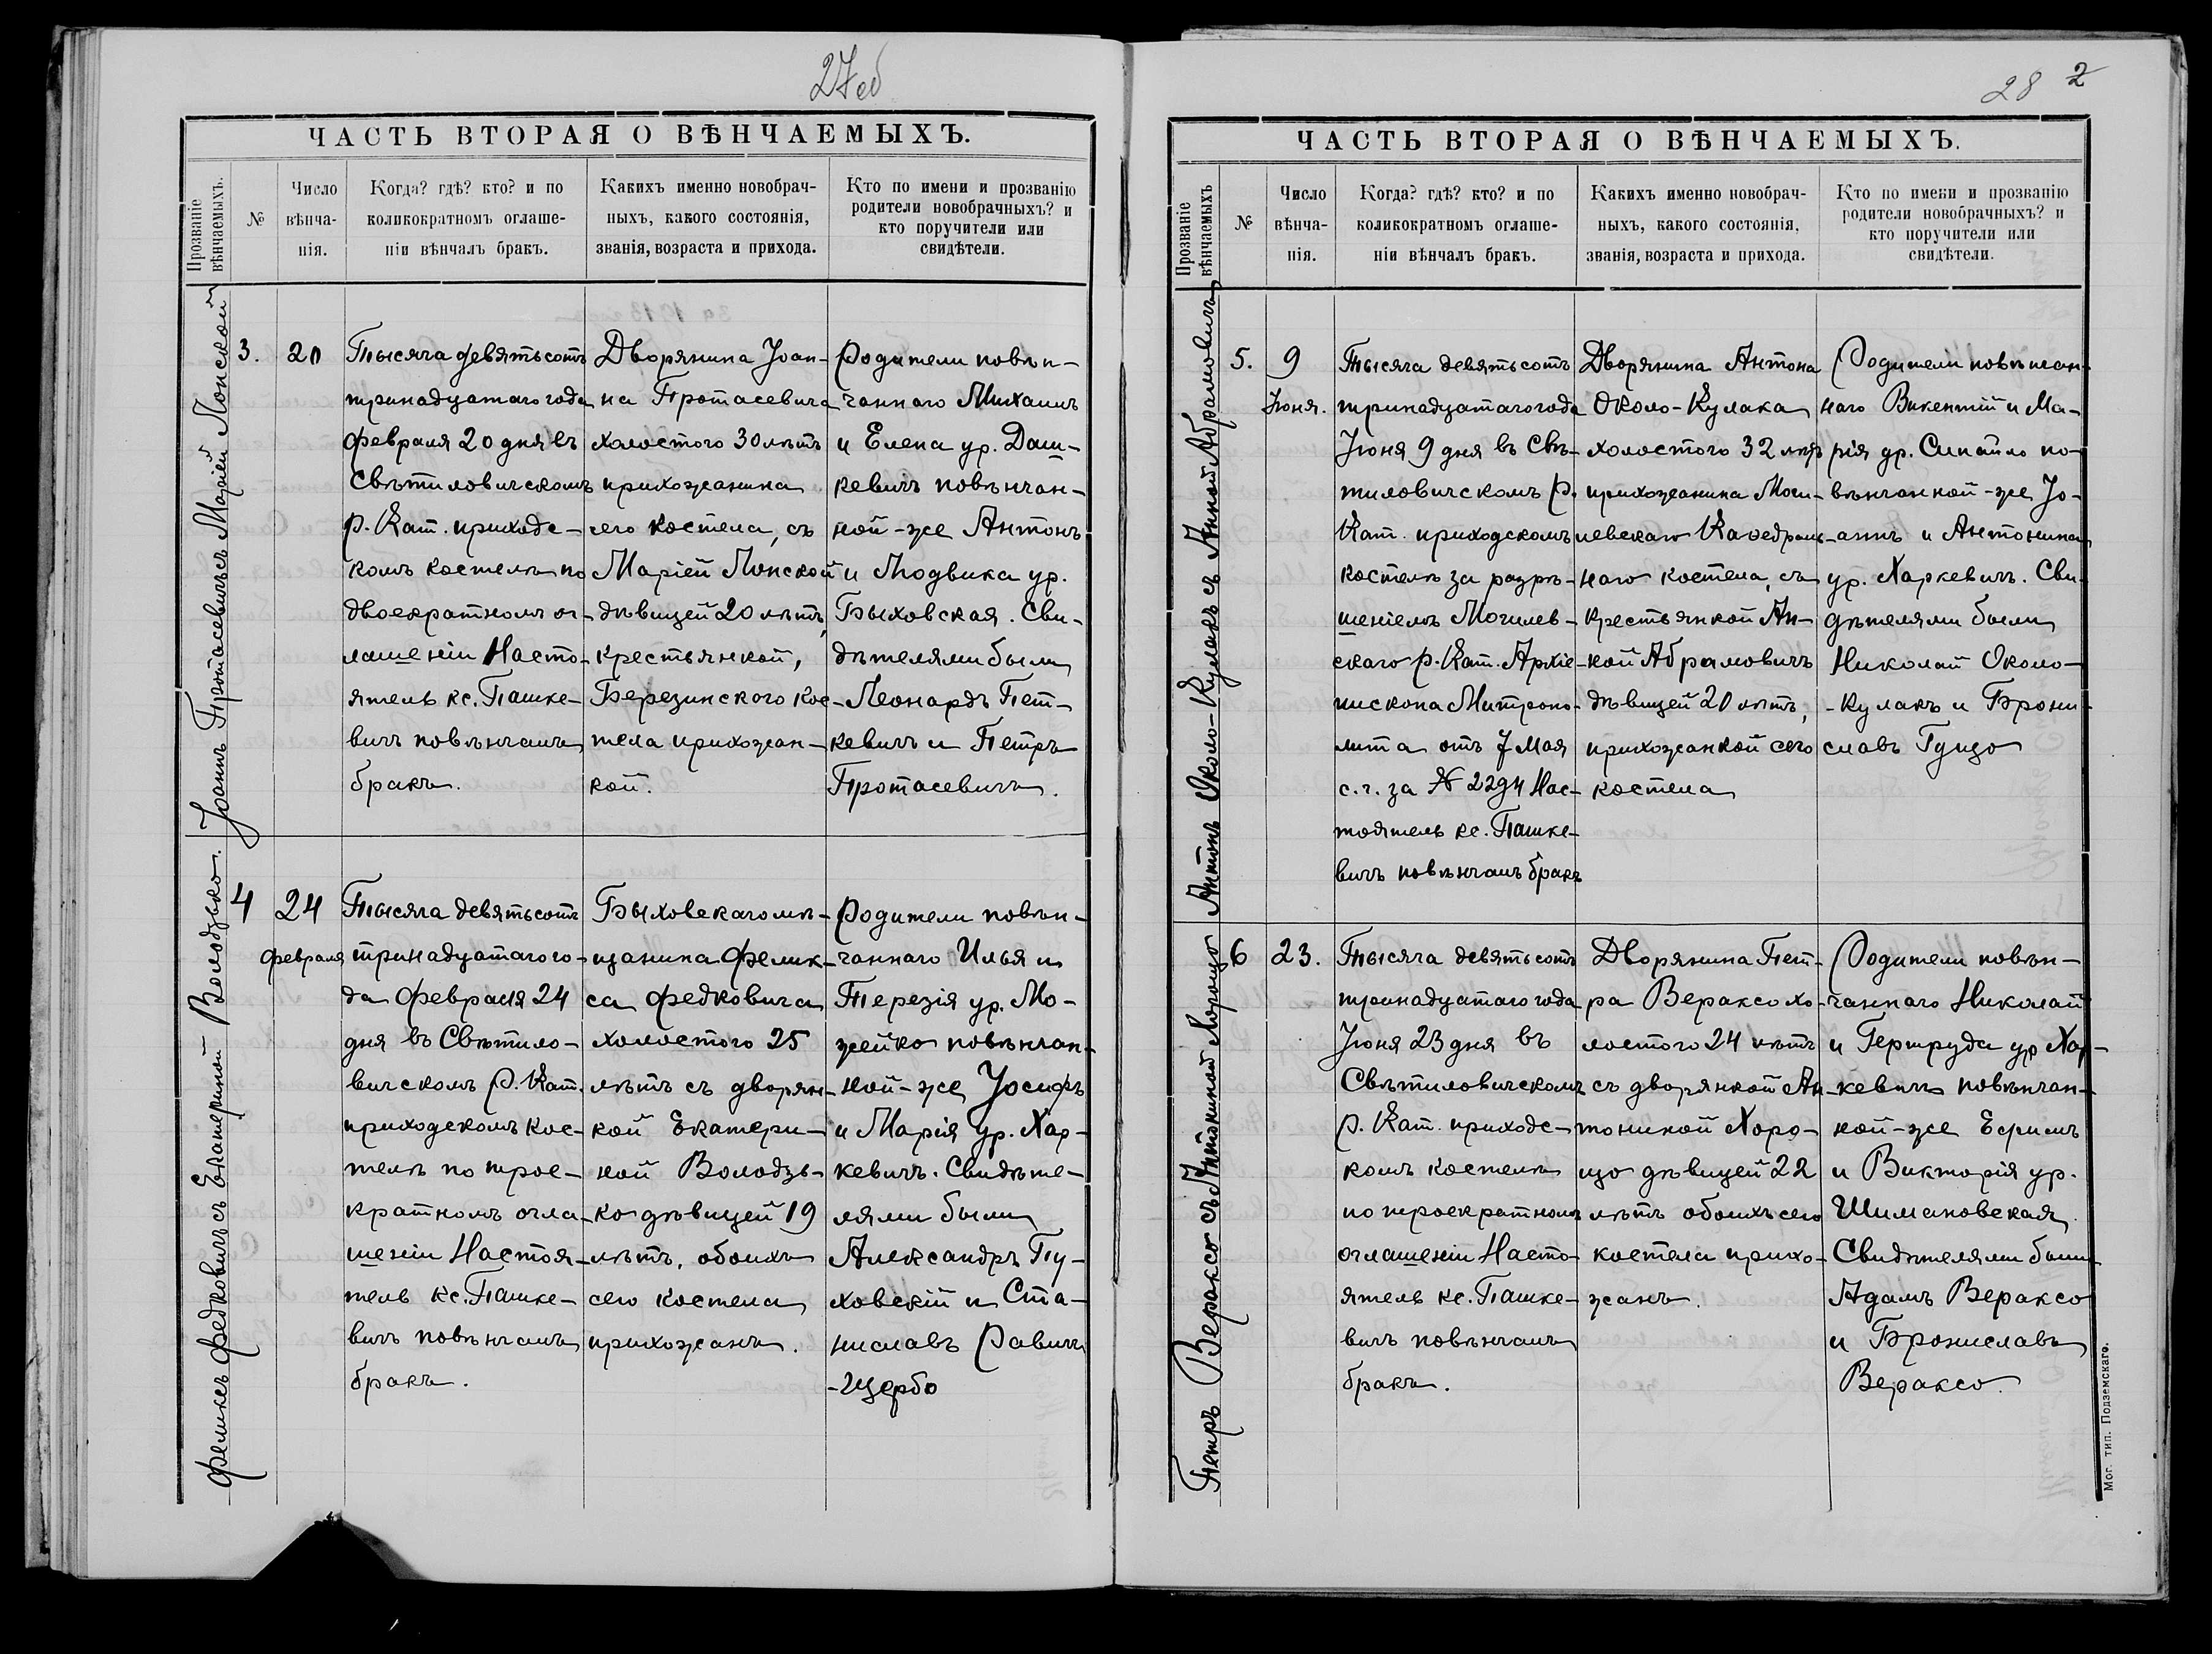 27 об
ЧАСТЬ ВТОРАЯ О ВѢНЧАЕМЫХЪ.
Прозваніе
вѣнчаемыхъ.
№
Число
вѣнча-
нія.
Когда? гдѣ? кто? и по
коликократномъ оглаше-
ніи вѣнчалъ бракъ.
Какихъ именно новобрач-
ныхъ, какого состоянія,
званія, возраста и прихода.
Кто по имени и прозванію
родители новобрачныхъ? и
кто поручители или
свидѣтели.
Іоаннъ Протасевичъ съ Маріей Лонской
3.
20
Тысяча девятьсотъ
тринадцатаго года
февраля 20 дня въ
Свѣтиловичскомъ
р. Кат. приходс-
комъ костелѣ по
двоекратномъ ог-
лашеніи Насто-
ятель кс. Пашке-
вичъ повѣнчалъ
бракъ.
Дворянина Іоан-
на Протасевича
холостого 30 лѣтъ
прихожанина
сего костела, съ
Маріей Лонской
дѣвицей 20 лѣтъ,
крестьянкой,
Березинского кос-
тела прихожан-
кой.
Родители повѣн-
чаннаго Михаилъ
и Елена ур. Даш-
кевичъ повѣнчан-
ной-же Антонъ
и Людвика ур.
Быховская. Сви-
дѣтелями были
Леонардъ Пет-
кевичъ и Петръ
Протасевичъ.
Феликсъ Федковичъ съ Екатериной Володзько.
4
24
февраля
Тысяча девятьсотъ
тринадцатаго го-
да февраля 24
дня въ Свѣтило-
вичскомъ р. Кат.
приходскомъ кос-
телѣ по трое-
кратномъ огла-
шеніи Настоя-
тель кс. Пашке-
вичъ повѣнчалъ
бракъ.
Быховскаго мѣ-
щанина Фелик-
са Федковича
холостого 25
лѣтъ съ дворян-
кой Екатери-
ной Володзь-
ко дѣвицей 19
лѣтъ, обоихъ
сего костела
прихожанъ.
Родители повѣн-
чаннаго Илья и
Терезія ур. Мо-
жейко повѣнчан-
ной-же Іосифъ
и Марія ур. Хар-
кевичъ. Свидѣте-
лями были
Александръ Пу-
ховскій и Ста-
ниславъ Равичъ
-Щербо
28 2
ЧАСТЬ ВТОРАЯ О ВѢНЧАЕМЫХЪ.
Прозваніе
вѣнчаемыхъ
№
Число
вѣнча-
нія.
Когда? гдѣ? кто? и по
коликократномъ оглаше-
ніи вѣнчалъ бракъ.
Какихъ именно новобрач-
ныхъ, какого состоянія,
званія, возраста и прихода.
Кто по имени и прозванію
родители новобрачныхъ? и
кто поручители или
свидѣтели.
Антонъ Около-Кулакъ съ Анной Абрамовичъ
5.
9
Іюня.
Тысяча девятьсотъ
тринадцатаго года
Іюня 9 дня въ Свѣ-
тиловичскомъ р.
Кат. приходскомъ
костелѣ за разрѣ-
шеніемъ Могилев-
скаго р. Кат. Архіе-
пископа Митропо-
лита отъ 7 Мая
с.г. за № 2294 Нас-
тоятель кс. Пашке-
вичъ повѣнчалъ бракъ
Дворянина Антона
Около-Кулака
холостого 32 лѣтъ
прихожанина Моги-
левскаго Каѳедраль-
наго костела, съ
крестьянкой Ан-
ной Абрамовичъ
дѣвицей 20 лѣтъ,
прихожанкой сего
костела
Родители повѣнчан-
наго Викентій и Ма-
рія ур. по-
вѣнчанной-же Іо-
аннъ и Антонина
ур. Харкевичъ. Сви-
дѣтелями были
Николай Около-
-Кулакъ и Брони-
славъ Гуцо
Петръ Вераксо съ Антониной Хорощо
6
23.
Тысяча девятьсотъ
тринадцатаго года
Іюня 23 дня въ
Свѣтиловичскомъ
р. Кат. приходс-
комъ костелѣ
по троекратномъ
оглашеніи Насто-
ятель кс. Пашке-
вичъ повѣнчалъ
бракъ.
Дворянина Пет-
ра Вераксо хо-
лостого 24 лѣтъ
съ дворянкой Ан-
тониной Хоро-
що дѣвицей 22
лѣтъ обоихъ сего
костела прихо-
жанъ.
Родители повѣн-
чаннаго Николай
и Гертруда ур Хар-
кевичъ повѣнчан-
ной-же Ефимъ
и Викторія ур.
Шимановская.
Свидѣтелями были
Адамъ Вераксо
и Брониславъ
Вераксо.
Мог. тип. Подземскаго.